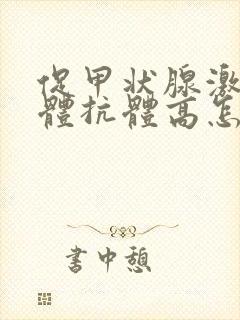 促甲状腺激
體抗體高怎
書中憩